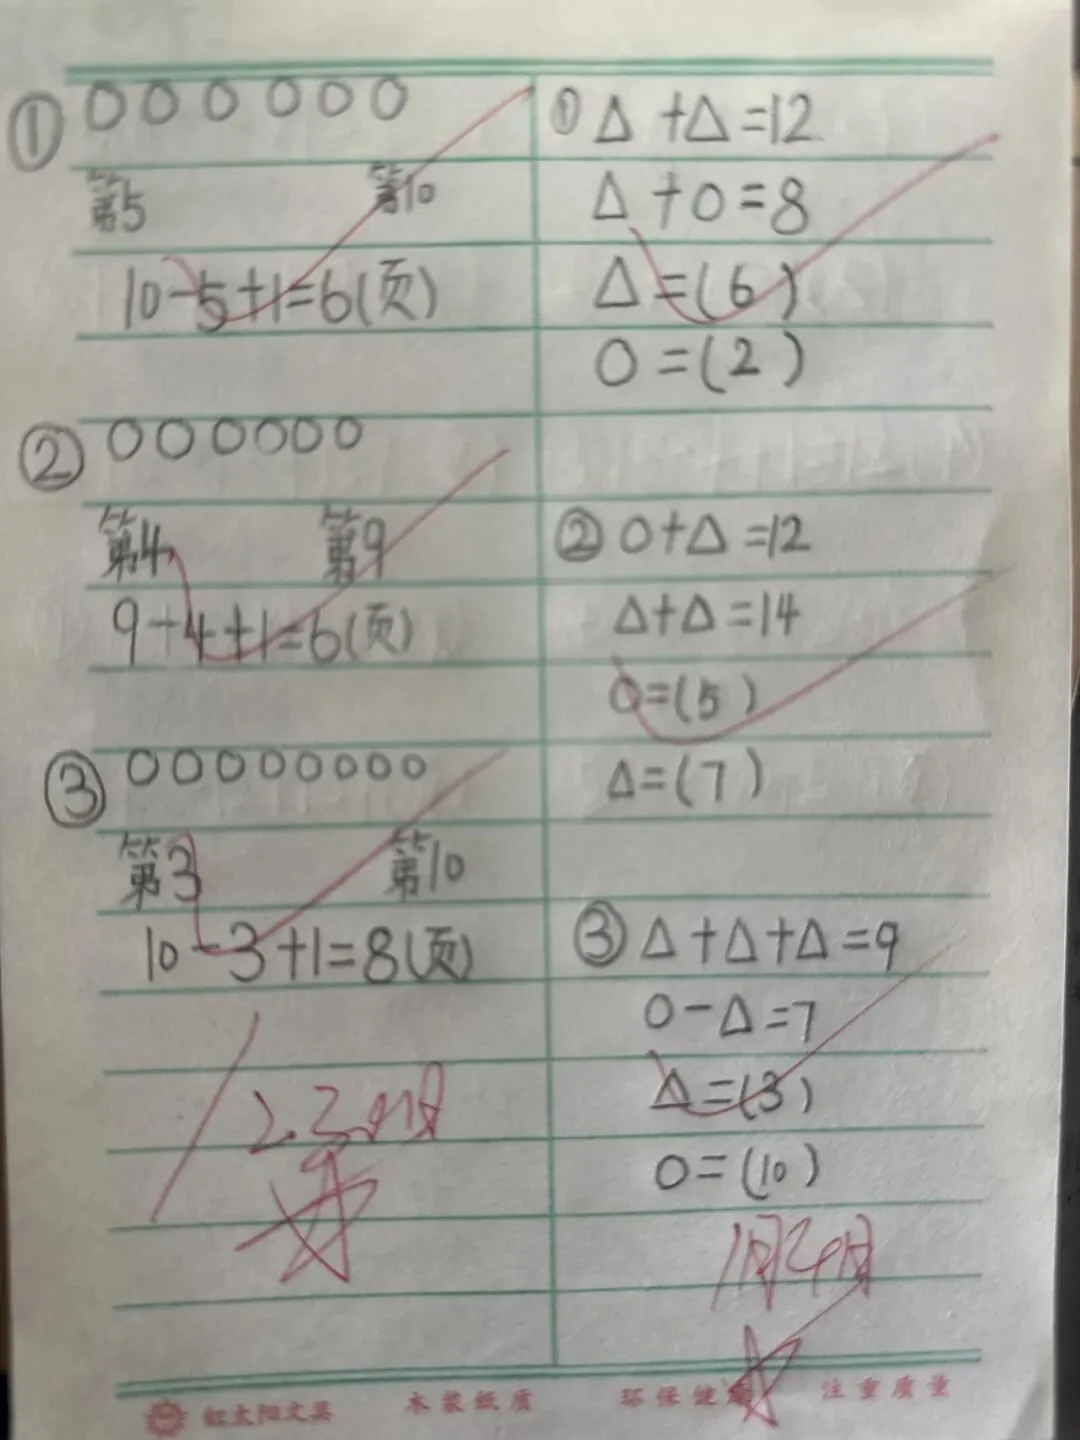 ① ○ ○ ○ ○ ○ ○
第5 第10
10-5+1=6(页)
② ○ ○ ○ ○ ○ ○
第4 第9
9-4+1=6(页)
③ ○ ○ ○ ○ ○ ○ ○ ○
第3 第10
10-3+1=8(页)
① △+△=12
△+○=8
△=(6)
○=(2)
② ○+△=12
△+△=14
○=(5)
△=(7)
③ △+△+△=9
○-△=7
△=(3)
○=(10)
1月24日
红太阳文具 木浆纸质 环保健康 注重质量